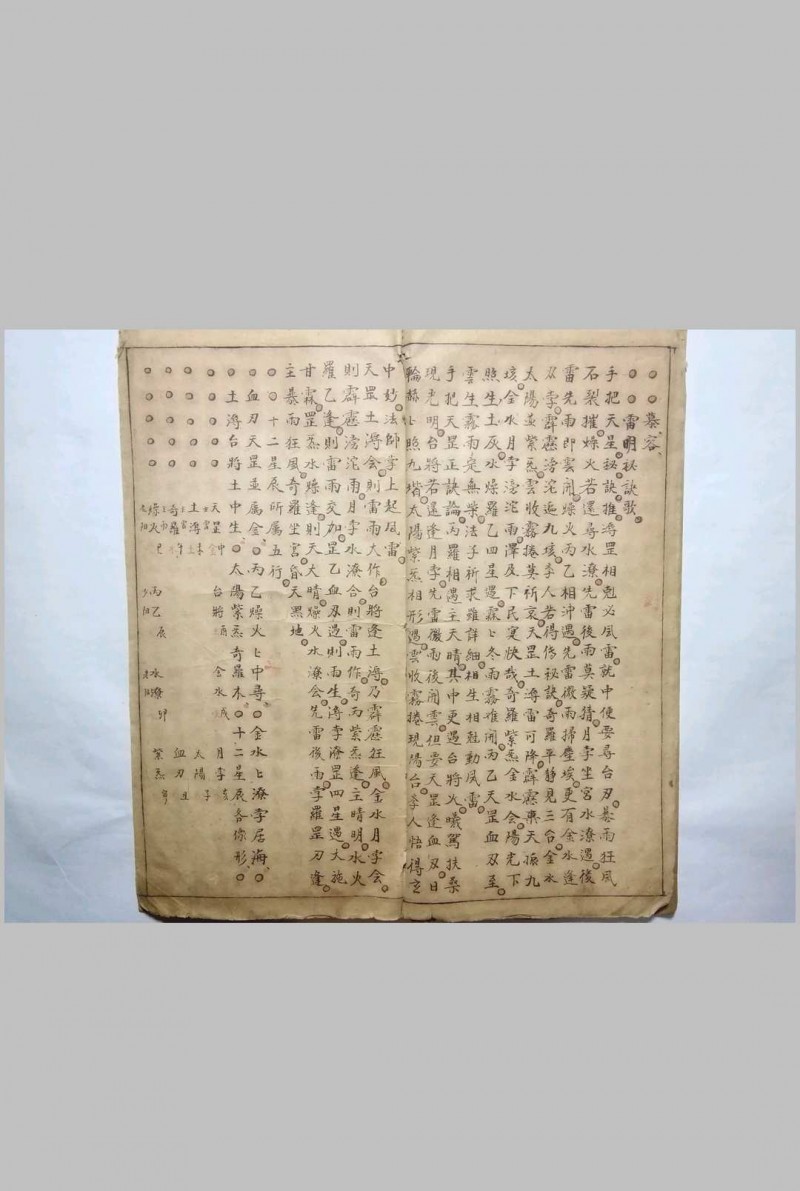 慕容
雷明秘訣歌
手把天星秘訣推海罡相剋必風雷就中使要尋台刃暴雨狂風
石裂摧燥火若還尋水潦先雷後雨莫疑猜月孛坐宮水潦遇後
雷先雨即雲開燥火丙乙相沖遇先雷微雨掃塵埃更有金水逢
刃孛霹靂滂沱遍九垓學人若得傳秘訣奇羅平靜見三台金水
太陽並紫炁雲收霧捲莫祈哀天罡土海雷可降霹靂藥天振九
垓金水月孛滂沱雨澤及下民寔快哉奇羅紫炁金水会陽光下
照生土灰水燥羅乙四星遇霖匕冬雨霧难開丙乙天罡血刃至
雲生霧雨定無柴法子祈求難詳細相生相尅動風雷
手把天罡正訣論丙羅相遇主天晴其中更遇台將火曦駕扶桑
現光明台將若還逢月孛先雷徽雨後開雲但要天罡逢血刃日
輪赫匕照九堦太陽紫炁相形遇雲收霧捲現陽台學人悟得玄
中妙法師掌上起風雷
天罡土海会則雷雨大作台將逢土海乃霹靂狂風金水月孛会
則霹靂滂沱雨月孛水潦合則雷雨作奇丙紫炁逢主晴明水火
羅乙逢則雷雨交加罡乙血刃遇則雨生海孛潦罡四星遇大施
甘霖罡炁水燥逢則天大晴燥火水潦会先雷後雨孛羅罡刃逢
主暴雨狂風奇羅坐宮昏天黑地
十二星辰所屬五行
血刃天罡並属金丙乙燥火匕中尋金水匕潦孛居海
土海台將土中生太陽紫炁奇羅木十二星辰各像形
天罡申 台將酉 金水戌 月孛亥
土海未 太陽子
奇羅午 血刃丑
燥火巳 丙乙辰 水潦卯 紫炁寅